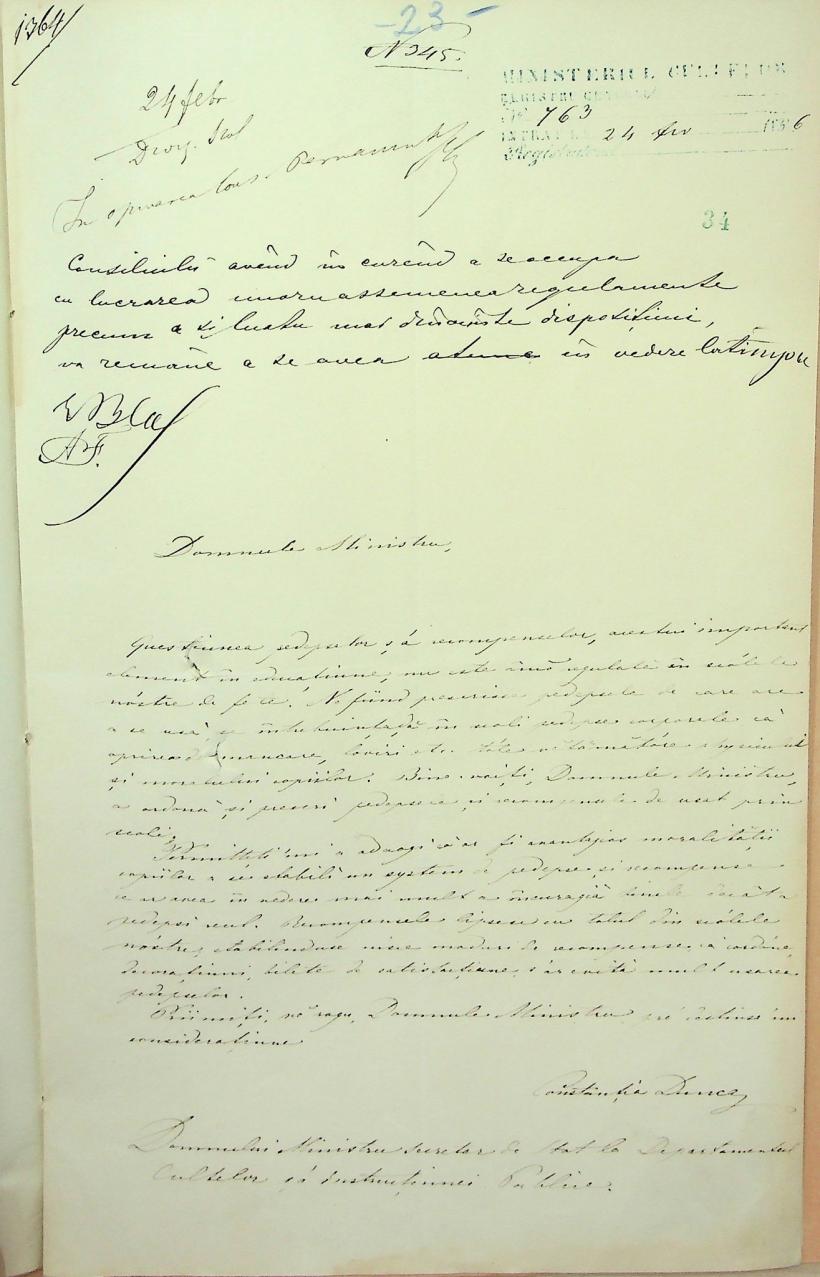 1364
-23-
N 345.
24 febr
MINISTERIUL CULTELOR
REGISTRU GENERAL
No 763
INTRAT 24 1866
Registrator
In opiniarea Cons. Permanent
34
Consiliulŭ avênd în curênd a se occupa
cu lucrarea unoru assemenea regulamente
precum a și luatu mai dispositiuni,
va remâne a se avea atunci în vedere
A.F.
Domnule Ministru,
Questiunea pedepselor și a recompenselor, acestui important
element în educațiune, nu este încă regulată în scólele
nóstre de fete. Ne fiind prescrise pedepsele de care are
a se usà, se întrebuințadă în scoli pedepse corporale ca
oprirea de mancare, loviri etc. tóte vătămătóre
și moralului copiilor. Bine-voiți, Domnule Ministru,
a ordonà și prescri pedepsele și recompensele de usat prin
scoli.
Permitteți'mi a adaogi că ar fi avantajios moralității
copiilor a se stabili un system de pedepse și recompense
ce ar avea în vedere mai mult a încuragià binele decât a
pedepsi reul. Recompensele lipsesc cu totul din scólele
nóstre, stabilinduse nisce moduri de recompense ca cordóne,
decorațiuni, bilete de satisfacțiune, s'ar evità mult usarea
pedepselor.
Priimiți, vĕ rogu, Domnule Ministru, distinsa'mi
considerațiune
Constanția Dunca
Domnului Ministru Secretar de Stat la Departamentul
Cultelor și Instrucțiunei Publice.